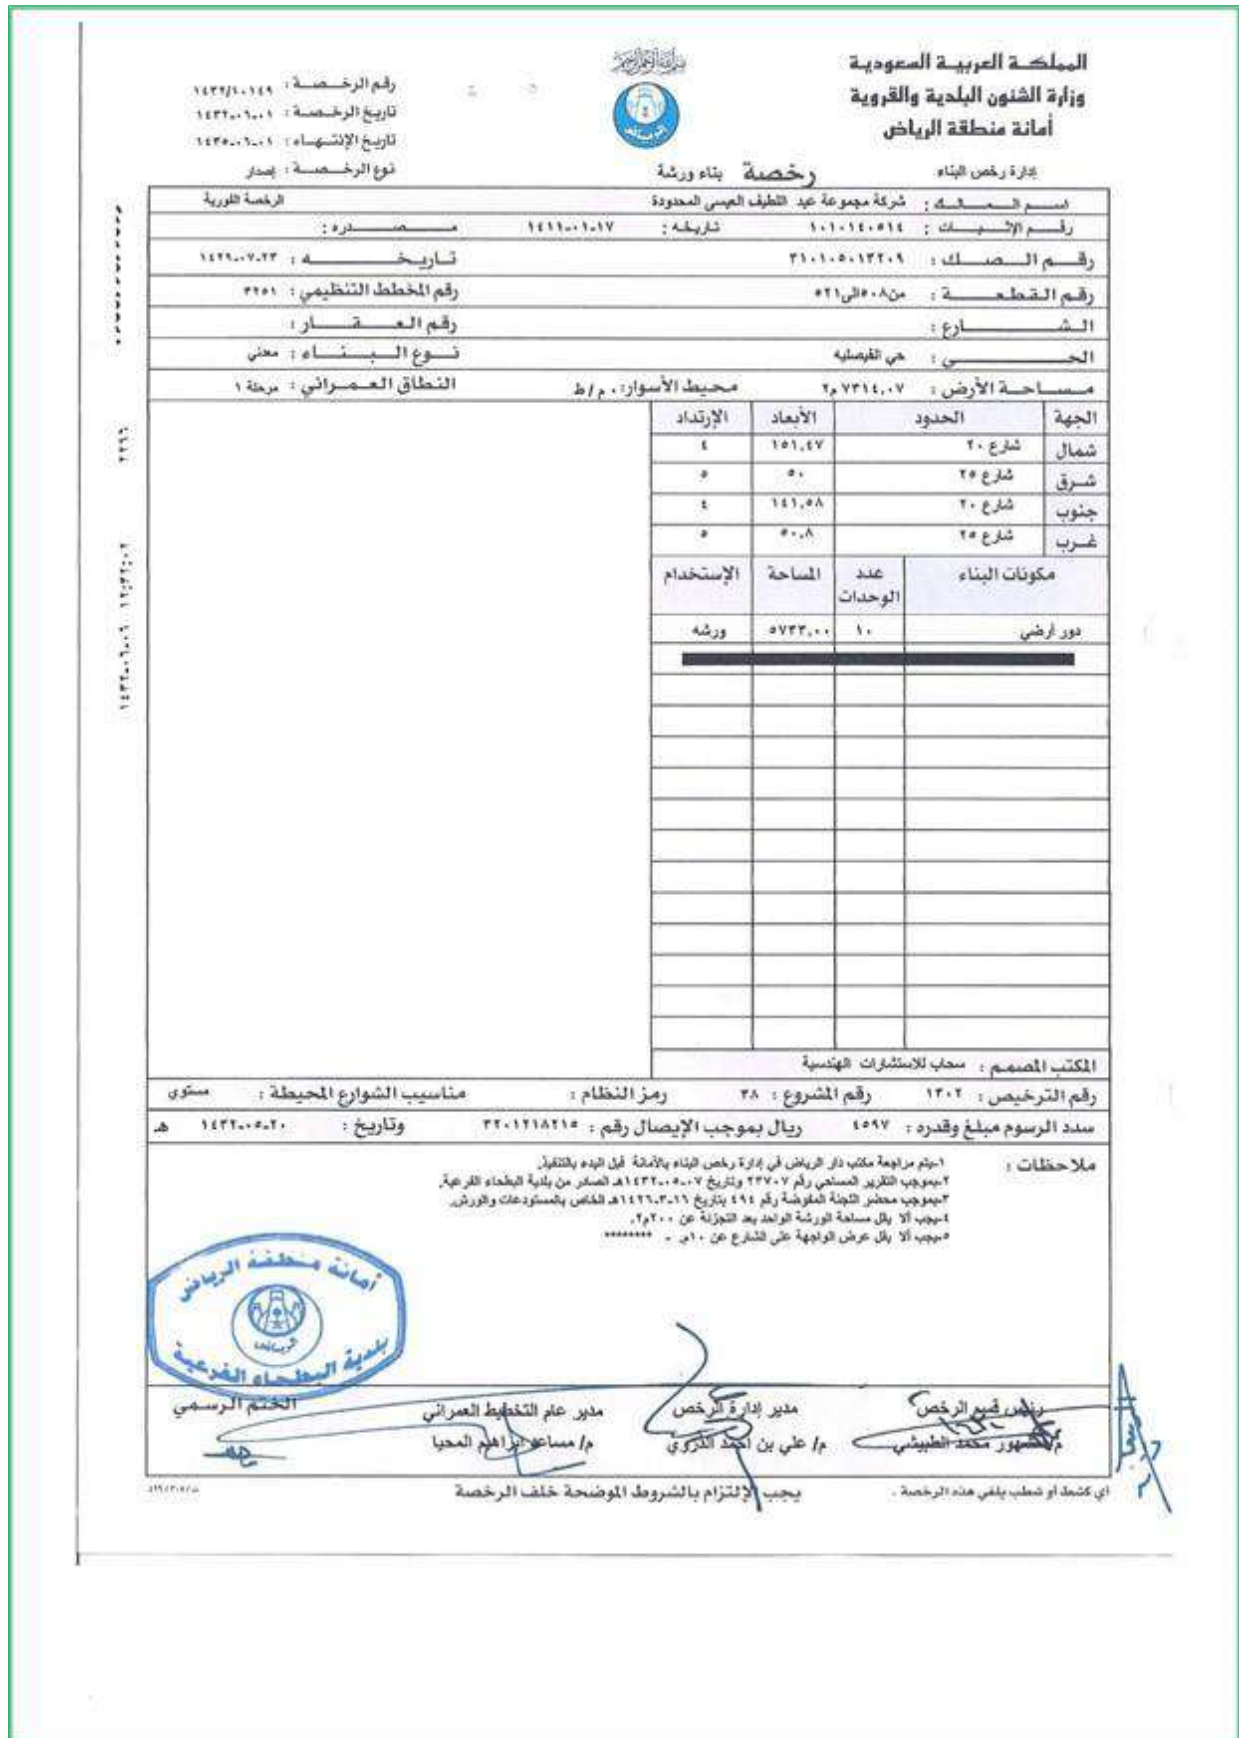 المملكة العربية السعودية
وزارة الشئون البلدية والقروية
أمانة منطقة الرياض
إدارة رخص البناء
رخصة بناء ورشة
رقم الرخصة : ١٤٣٢/١٠١٤٩
تاريخ الرخصة : ١٤٣٢-٠٦-٠١
تاريخ الإنتهاء : ١٤٣٥-٠٦-٠١
نوع الرخصة : إصدار
اسم المالك : شركة مجموعة عبد اللطيف العيسى المحدودة الرخصة الفورية
رقم الإثبات : ١٠١٠١٤٠٥١٤ تاريخه : ١٤١٦-٠١-١٧ مصدره :
رقم الصك : ٣١٠١٠٥٠١٣٢٠٩ تاريخه : ١٤٢٩-٠٧-٢٣
رقم القطعة : من٥٠٨الى٥٢١ رقم المخطط التنظيمي : ٣٢٥١
الشارع : رقم العقار :
الحي : حي الفيصليه نوع البناء : معدني
مساحة الأرض : ٧٣١٤,٠٧ م٢ محيط الأسوار: ٠ م/ط النطاق العمراني : مرحلة ١
الجهة الحدود الأبعاد الإرتداد
شمال شارع ٢٠ ١٥١,٤٧ ٤
شرق شارع ٢٥ ٥٠ ٥
جنوب شارع ٢٠ ١٤١,٥٨ ٤
غرب شارع ٢٥ ٥٠,٨ ٥
مكونات البناء عدد الوحدات المساحة الإستخدام
دور أرضي ١٠ ٥٧٣٣,٠٠ ورشه
المكتب المصمم : سحاب للاستشارات الهندسية
رقم الترخيص : ١٣٠٢ رقم المشروع : ٣٨ رمز النظام : مناسيب الشوارع المحيطة : مستوى
سدد الرسوم مبلغ وقدره : ٤٥٩٧ ريال بموجب الإيصال رقم : ٣٢٠١٢١٨٢١٥ وتاريخ : ١٤٣٢-٠٥-٢٠ هـ
ملاحظات : ١-يتم مراجعة مكتب دار الرياض في إدارة رخص البناء بالأمانة قبل البدء بالتنفيذ.
٢-بموجب التقرير المساحي رقم ٢٣٧٠٧ وتاريخ ١٤٣٢-٠٥-٠٧هـ الصادر من بلدية البطحاء الفرعية.
٣-بموجب محضر اللجنة المفوضة رقم ٤٩٤ بتاريخ ١٤٢٦-٣-١٦هـ الخاص بالمستودعات والورش.
٤-يجب ألا يقل مساحة الورشة الواحد بعد التجزئة عن ٢٠٠م٢.
٥-يجب ألا يقل عرض الواجهة على الشارع عن ١٠م. - ********
أمانة منطقة الرياض
الرياض
بلدية البطحاء الفرعية
رئيس قسم الرخص مدير إدارة الرخص مدير عام التخطيط العمراني الختم الرسمي
م/ مشهور محمد الطبيشي م/ علي بن أحمد الذروي م/ مساعد ابراهيم المحيا
أي كشط أو شطب يلغي هذه الرخصة . يجب الإلتزام بالشروط الموضحة خلف الرخصة
٢٢٦٦
١٤٣٢-٠٦-٠٦ ١٢:٣٢:٠٢